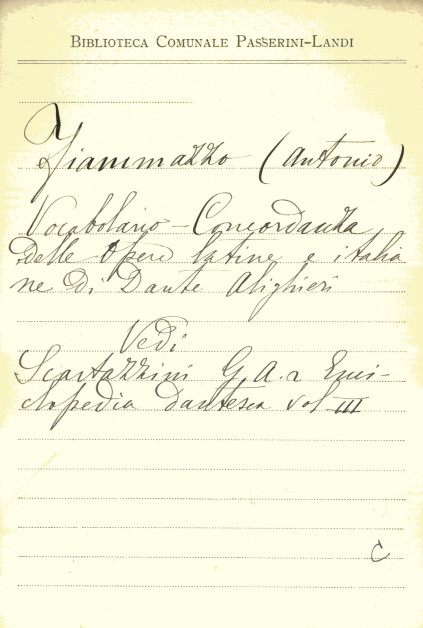 BIBLIOTECA COMUNALE PASSERINI-LANDI
Fiammazzo (Antonio)
Vocabolario-Concordanza
delle opere latine e italia
ne di Dante Alighieri
Vedi
Scartazzini G. A. Enci-
clopedia dantesca vol III
C